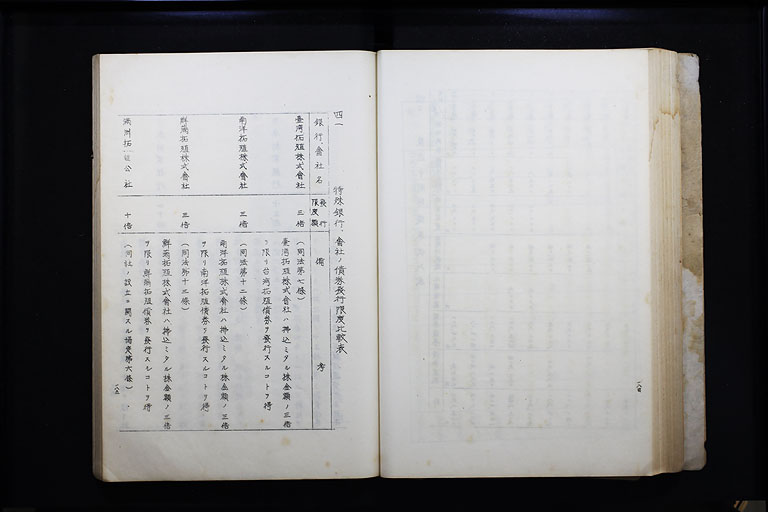 一八四
四一 特殊銀行、會社ノ債券發行限度比較表
銀行、會社名 發行限度額 備考
臺灣拓殖株式會社 三倍 (同法第七條)
臺灣拓殖株式會社ハ拂込ミタル株金額ノ三倍
ヲ限リ台灣拓殖債券ヲ發行スルコトヲ得
南洋拓殖株式會社 三倍 (同法第十二條)
南洋拓殖株式會社ハ拂込ミタル株金額ノ三倍
ヲ限リ南洋拓殖債券ヲ發行スルコトヲ得
鮮滿拓殖株式會社 三倍 (同法第十三條)
鮮滿拓殖株式會社ハ拂込ミタル株金額ノ三倍
ヲ限リ鮮滿拓殖債券ヲ發行スルコトヲ得
滿洲拓殖公社 十倍 (同社ノ設立ニ關スル協定第六條)
一八五